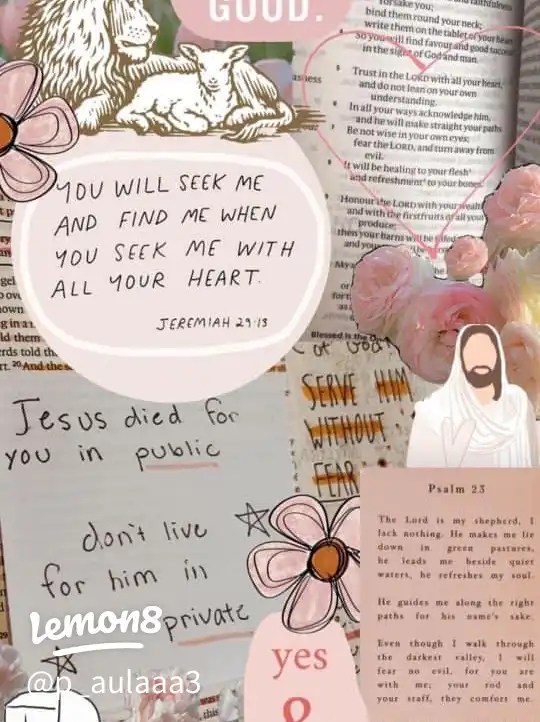 GOOD.
forsake you;
bind them round your neck;
write them on the tablet of your heart
So you will find favour and good success
in the sight of God and man.
5 Trust in the LORD with all your heart,
and do not lean on your own
understanding.
6 In all your ways acknowledge him,
and he will make straight your paths
7 Be not wise in your own eyes;
fear the LORD, and turn away from
evil.
8 It will be healing to your flesh
and refreshment to your bones.
Honour the LORD with your wealth
and with the firstfruits of all your
produce;
then your barns will be filled
YOU WILL SEEK ME
AND FIND ME WHEN
YOU SEEK ME WITH
ALL YOUR HEART.
JEREMIAH 29:13
Blessed is the
Jesus died for
you in public
don't live
for him in
private
of God
SERVE HIM
WITHOUT
FEAR
Psalm 23
The Lord is my shepherd, I
lack nothing. He makes me lie
down in green pastures,
he leads me beside quiet
waters, he refreshes my soul.
He guides me along the right
paths for his name's sake.
Even though I walk through
the darkest valley, I will
fear no evil, for you are
with me; your rod and
your staff, they comfort me.
yes
lemon8
@p_aulaaa3